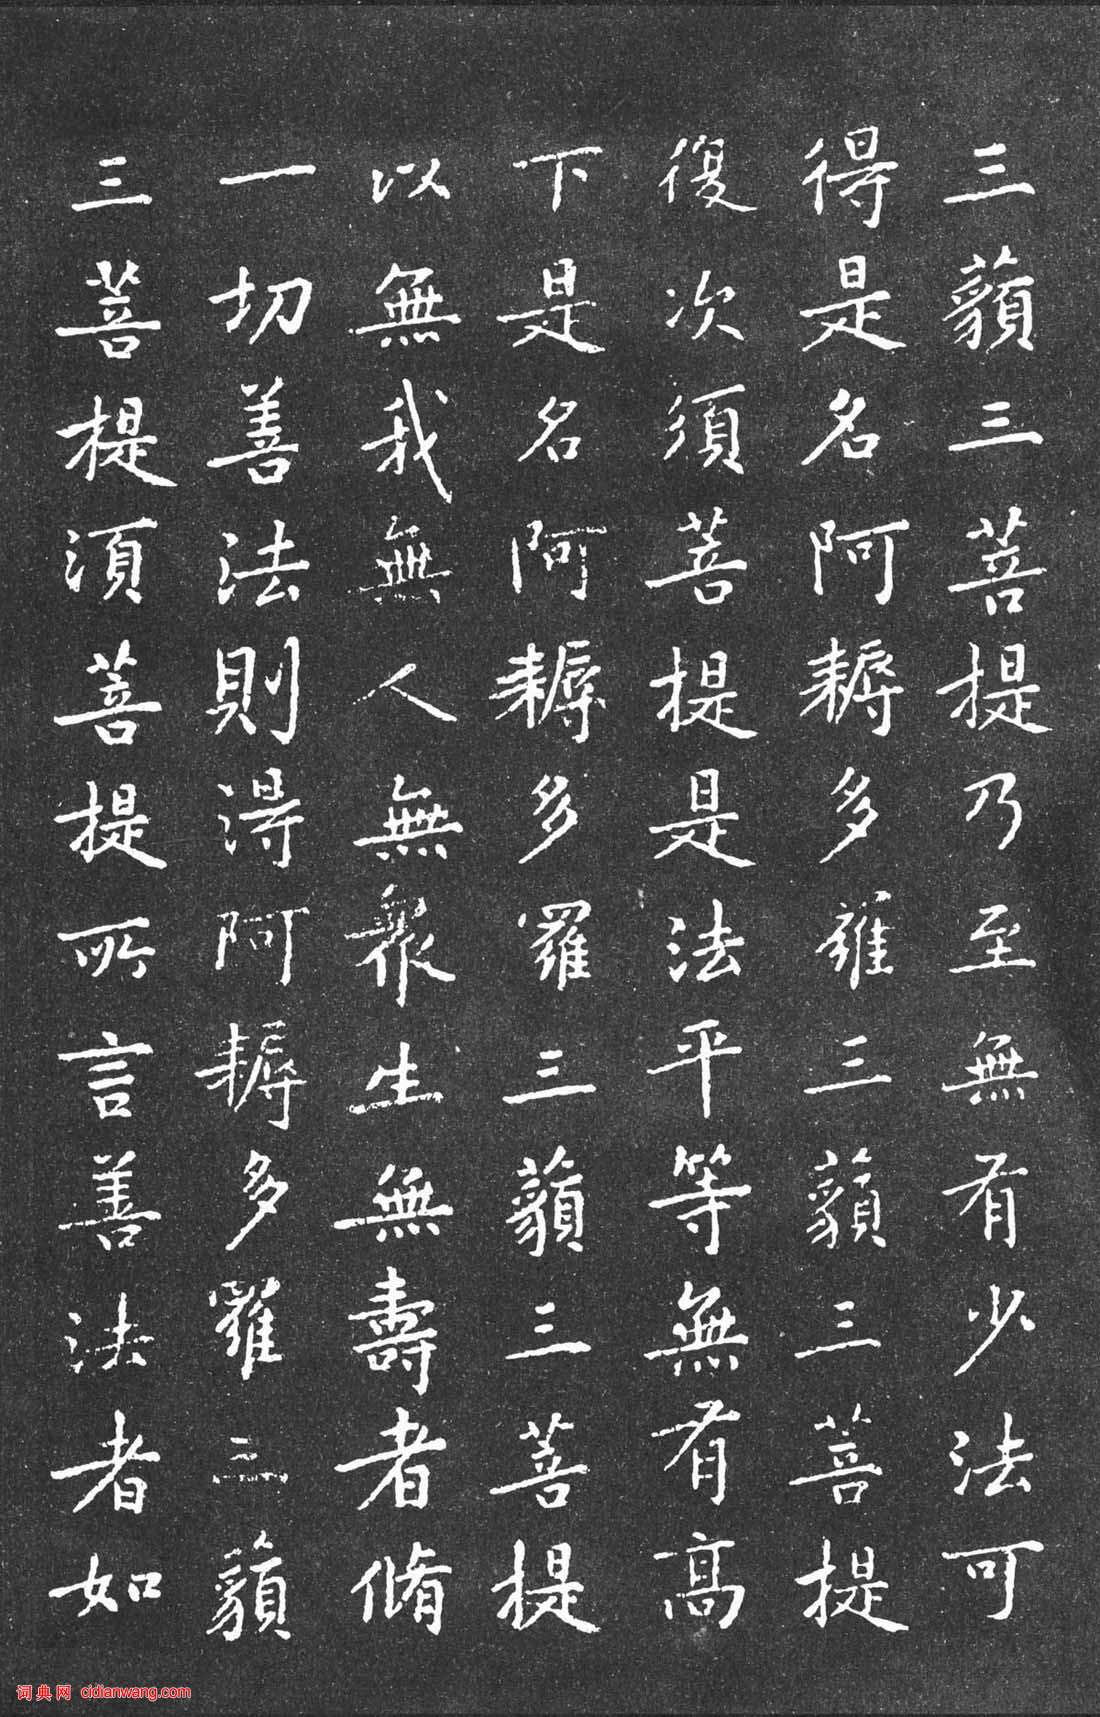 三藐三菩提乃至無有少法可
得是名阿耨多羅三藐三菩提
復次須菩提是法平等無有高
下是名阿耨多羅三藐三菩提
以無我無人無眾生無壽者脩
一切善法則得阿耨多羅三藐
三菩提須菩提所言善法者如
词典网 cidianwang.com